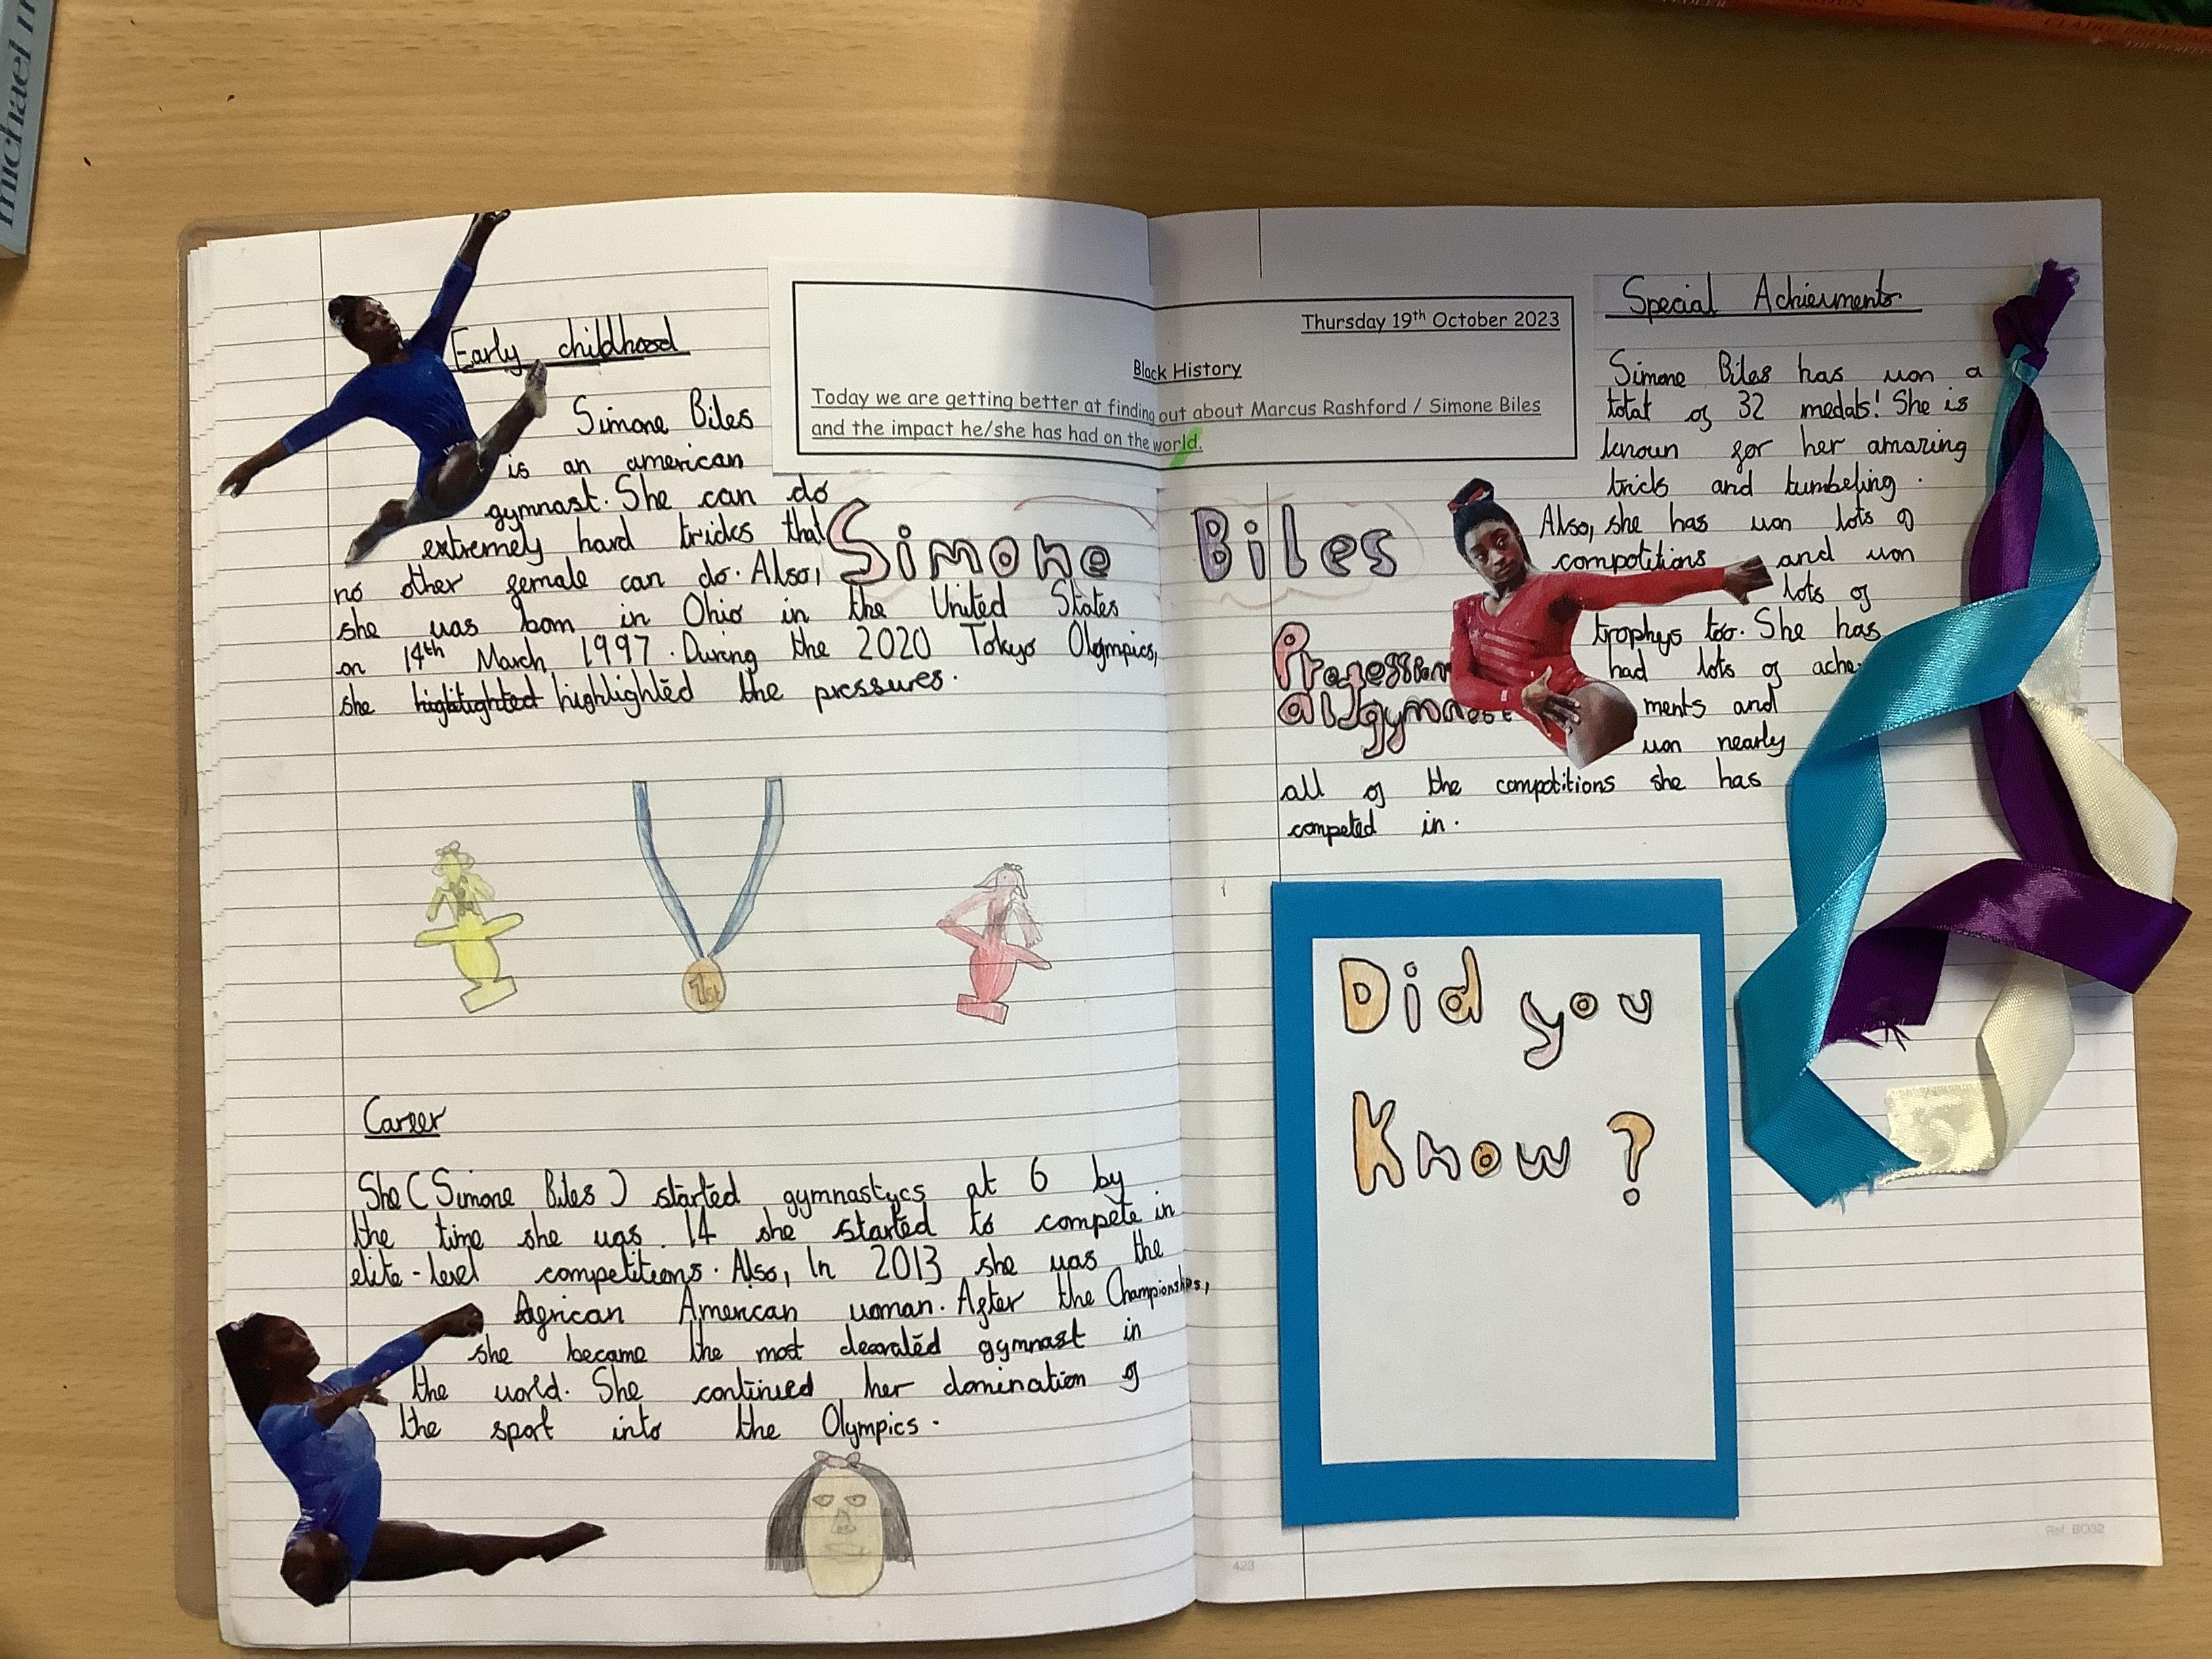 michael m
CLAIRE FREEDMAN
Thursday 19th October 2023
Black History
Today we are getting better at finding out about Marcus Rashford / Simone Biles
and the impact he/she has had on the world.
Early childhood
Simone Biles
is an american
gymnast. She can do
extremely hard tricks that
no other female can do. Also,
she was born in Ohio in the United States
on 14th March 1997. During the 2020 Tokyo Olympics,
she higlighted highlighted the pressures.
1st
Career
She (Simone Biles) started gymnastycs at 6 by
the time she was 14 she started to compete in
elite-level competitions. Also, In 2013 she was the
African American woman. After the Championships,
she became the most decorated gymnast in
the world. She continued her domination of
the sport into the Olympics.
Simone Biles
Professional gymnast
Special Achievments
Simone Biles has won a
total of 32 medals! She is
known for her amazing
tricks and tumbeling.
Also, she has won lots of
compotitions and won
lots of
trophys too. She has
had lots of achev
ments and
won nearly
all of the compotitions she has
competed in.
Did you
Know?
423
Ref: BO32